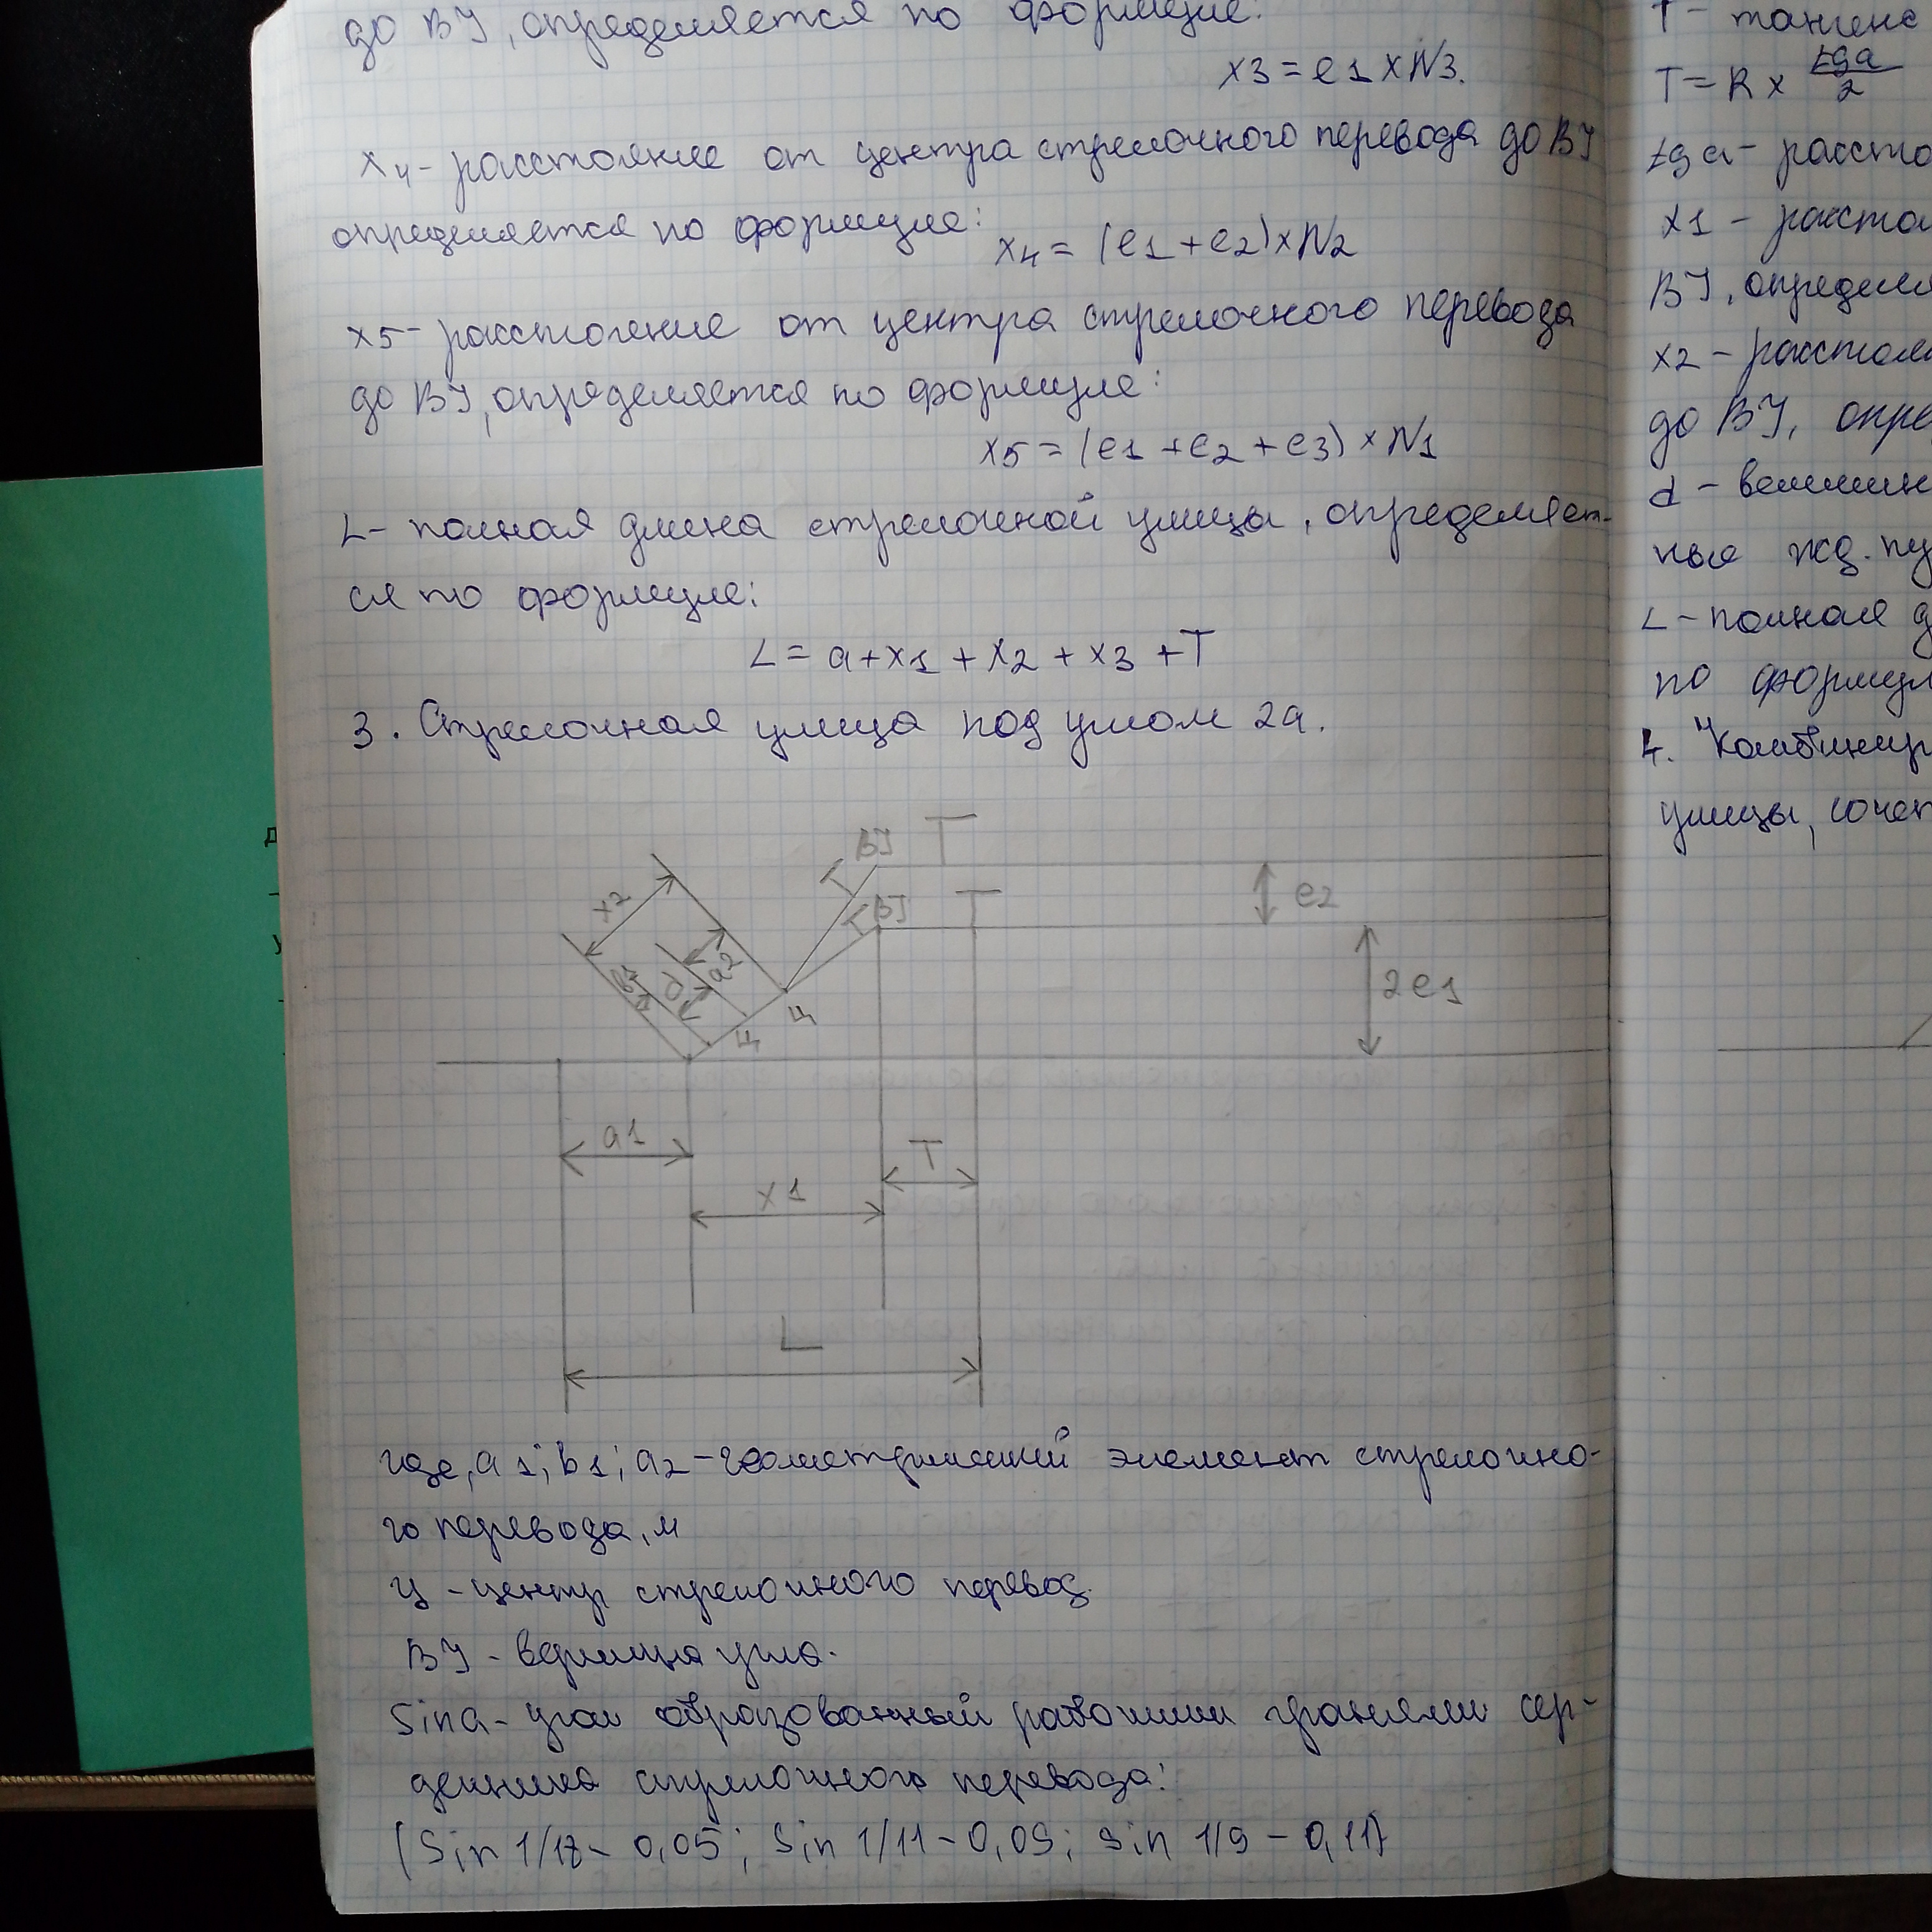 до ВУ, определяется по формуле:
x3 = e1 x N3.
x4 - расстояние от центра стрелочного перевода до ВУ
определяется по формуле:
x4 = (e1 + e2) x N2
x5 - расстояние от центра стрелочного перевода
до ВУ, определяется по формуле:
x5 = (e1 + e2 + e3) x N1
L - полная длина стрелочной улицы, определяет-
ся по формуле:
L = a + x1 + x2 + x3 + T
3. Стрелочная улица под углом 2a.
ВУ T
T
x2
ВУ T
T
e2
b1 d a2
2e1
Ц
Ц
a1
T
x1
L
где, a1; b1; a2 - геометрический элемент стрелочно-
го перевода, м
Ц - центр стрелочного перевод.
ВУ - вершина угла.
Sina - угол образованный рабочими гранями сер-
дечника стрелочного перевода:
(Sin 1/18 - 0,05; Sin 1/11 - 0,09; sin 1/9 - 0,11)
T - тангенс
T = R x tga/2
tga - рассто
x1 - расстоя
ВУ, определя
x2 - расстоя
до ВУ, опре
d - величин
ные жд. пу
L - полная д
по формул
4. "Комбинир
улицы, сочет